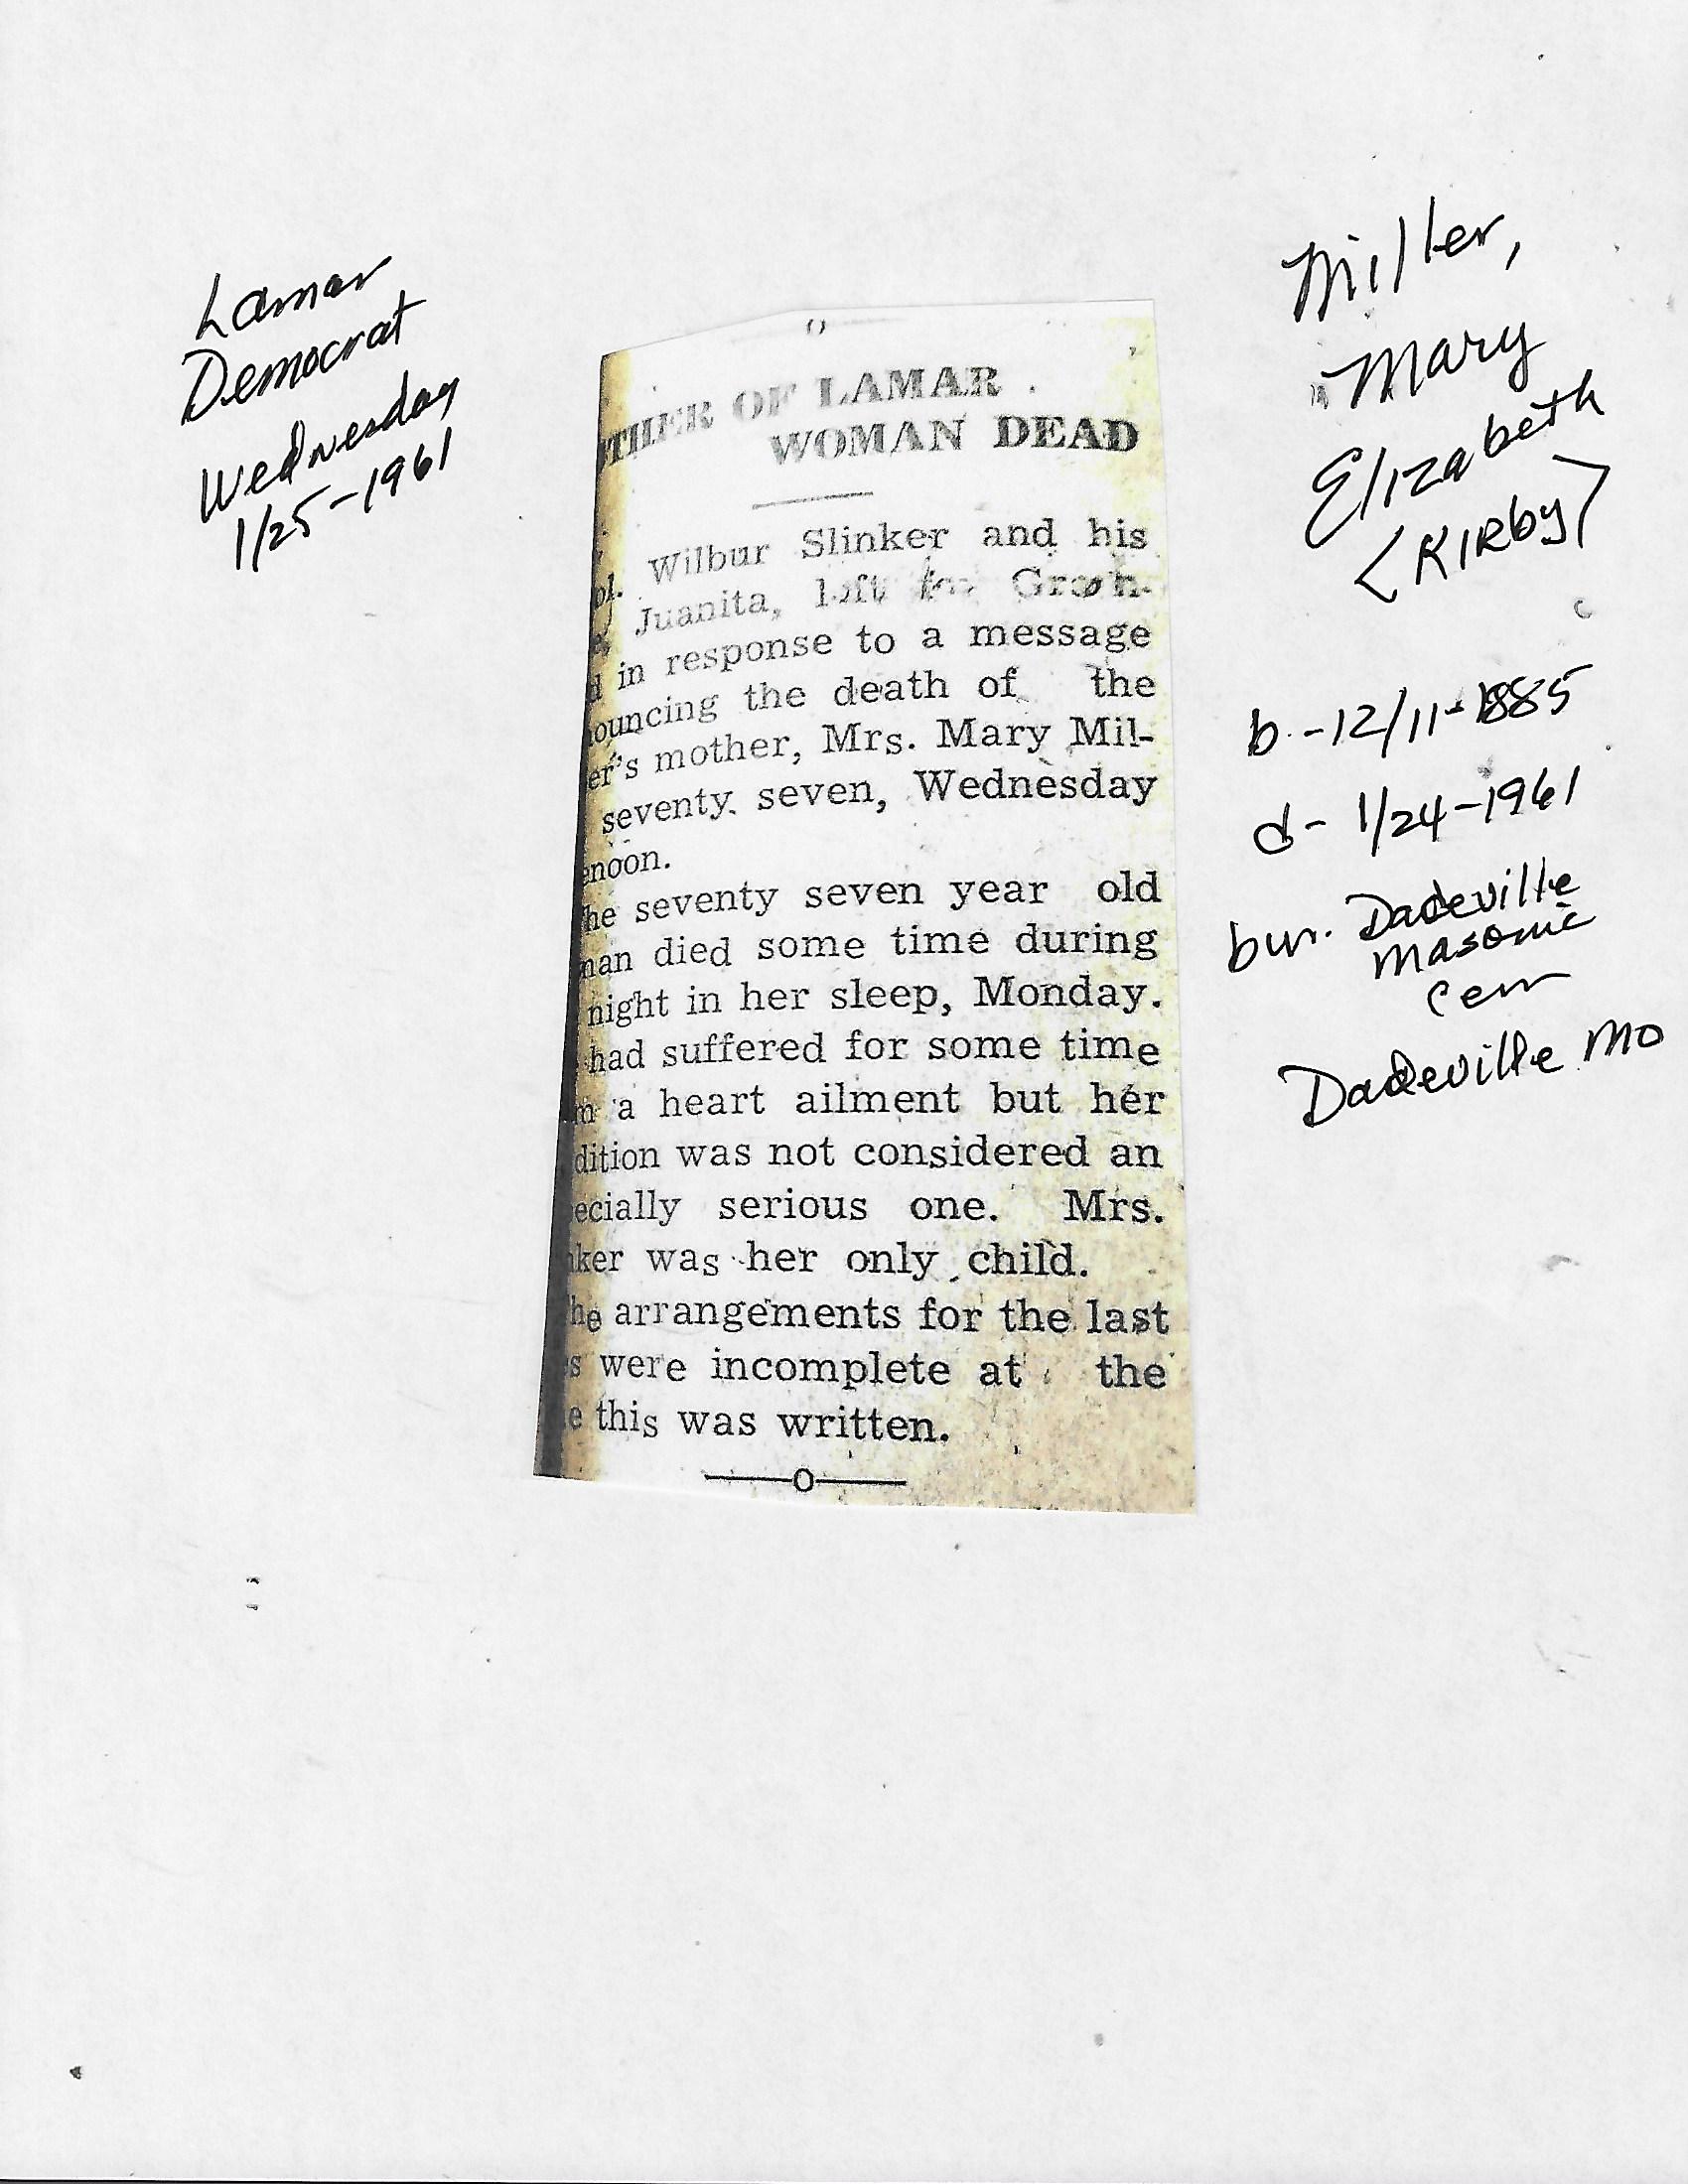 Lamar
Democrat
Wednesday
1/25-1961
THER OF LAMAR
WOMAN DEAD
ol. Wilbur Slinker and his
Juanita, left for Green-
d in response to a message
ouncing the death of the
er's mother, Mrs. Mary Mil-
seventy seven, Wednesday
enoon.
he seventy seven year old
man died some time during
night in her sleep, Monday.
had suffered for some time
m a heart ailment but her
dition was not considered an
ecially serious one. Mrs.
ker was her only child.
he arrangements for the last
s were incomplete at the
e this was written.
Miller,
Mary
Elizabeth
<KIRby>
b.-12/11-1885
d- 1/24-1961
bur. Dadeville
Masonic
Cem
Dadeville MO